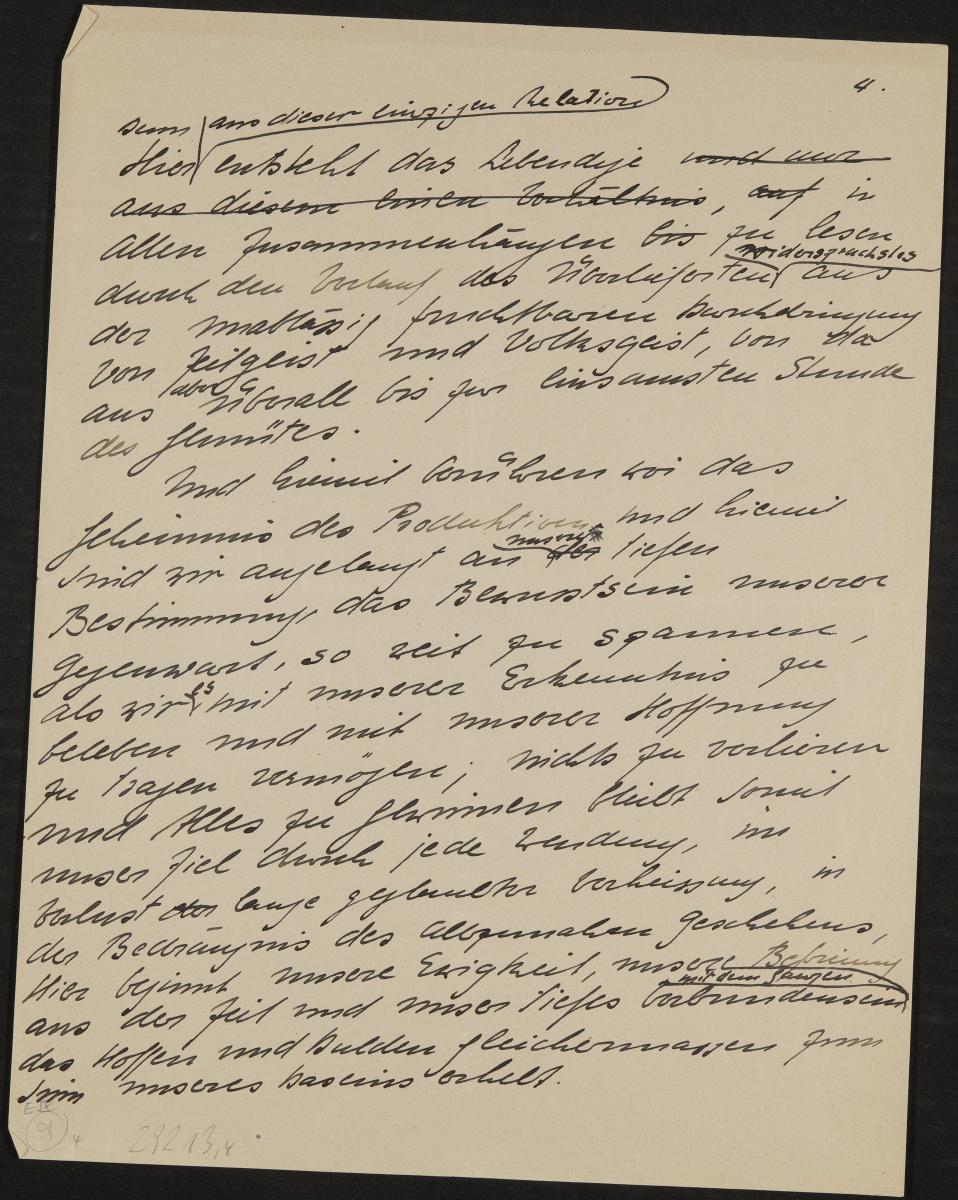 4.
denn aus dieser einzigen Relation
Hier entsteht das Lebendige und nur
aus diesem einen Verhältnis, auf in
Allen Zusammenhängen bis zu lesen
widerspruchslos
durch den Verlauf des Überlieferten aus
der unablässig fruchtbaren Durchdringung
von Zeitgeist und Volksgeist, von da
aber
aus überall bis zur einsamsten Stunde
des Gemütes.
Und hiemit berühren wir das
Geheimnis des Produktiven und hiemit
unsrer
sind wir angelangt an der tiefen
Bestimmung, das Bewusstsein unserer
Gegenwart, so weit zu spannen,
es
als wir mit unserer Erkenntnis zu
beleben und mit unserer Hoffnung
zu tragen vermögen; nichts zu verlieren
und Alles zu gewinnen bleibt somit
unser Ziel durch jede Wendung, im
Verlust der lange geglaubter Verheissung, in
der Bedrängnis des allzunahen Geschehens,
Hier beginnt unsere Ewigkeit, unsere Befreiung
mit dem Ganzen
aus der Zeit und unser tiefes Verbundensein
das Hoffen und Dulden gleichermassen zum
Sinn unseres Daseins erhebt.
9
4